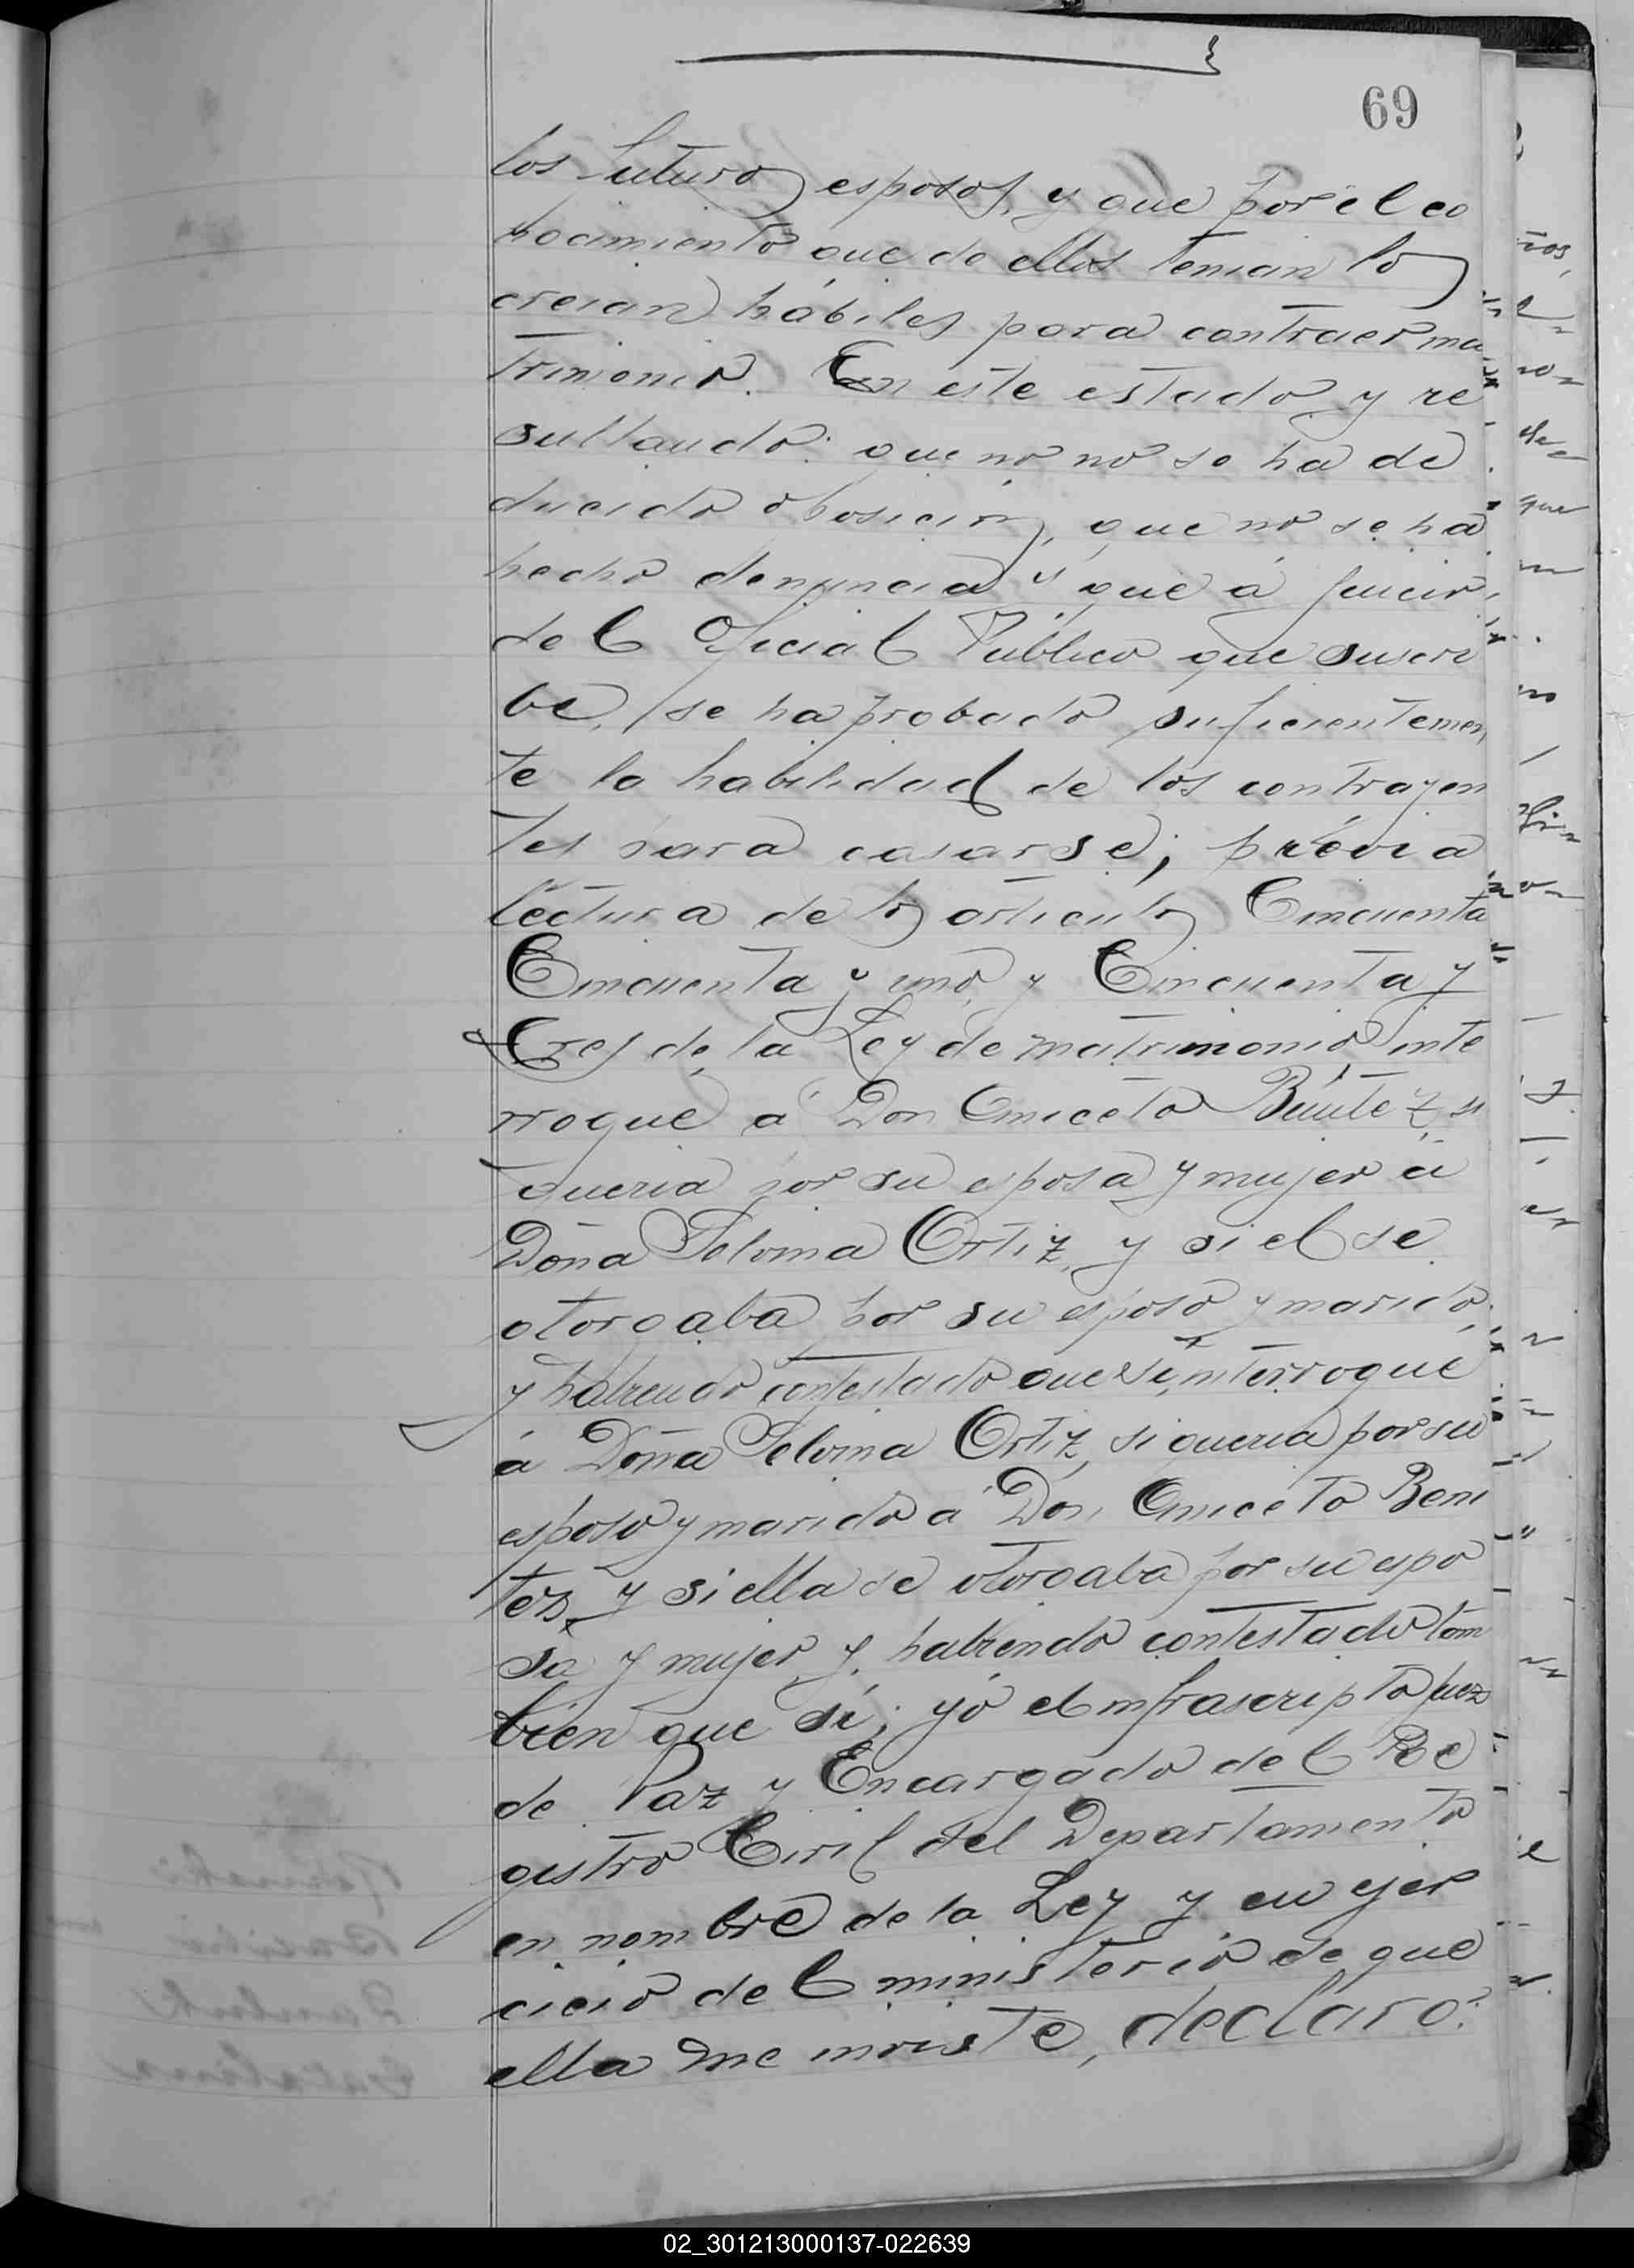 69
los futuros esposos, y que por el co
nocimiento que de ellos tenian los
creian hábiles para contraer ma
trimonio. En este estado y re
sultando: que no no se ha de
ducido oposición, que no se ha
hecho denuncia y que á juicio
del Oficial Público que suscri
be, se ha probado suficientemen
te la habilidad de los contrayen
tes para casarse; prévia
lectura de los articulos Cincuenta
Cincuenta y uno y Cincuenta y
tres de la Ley de matrimonio inte
rrogue á Don Aniceto Benitez, si
queria por su esposa y mujer á
Doña Selvina Ortiz, y si el se
otorgaba por su esposo y marido,
y habiendo contestado que sí, interrogué
á Doña Selvina Ortiz, si queria por su
esposo y marido á Don Aniceto Beni
tez, y si ella se otorgaba por su espo
sa y mujer y habiendo contestado tam
bien que sí; yó el infrascripto Juez
de Paz y Encargado del Re
gistro Civil del Departamento
en nombre de la Ley y en ejer
cicio del ministerio de que
ella me inviste, declaro:
02_301213000137-022639